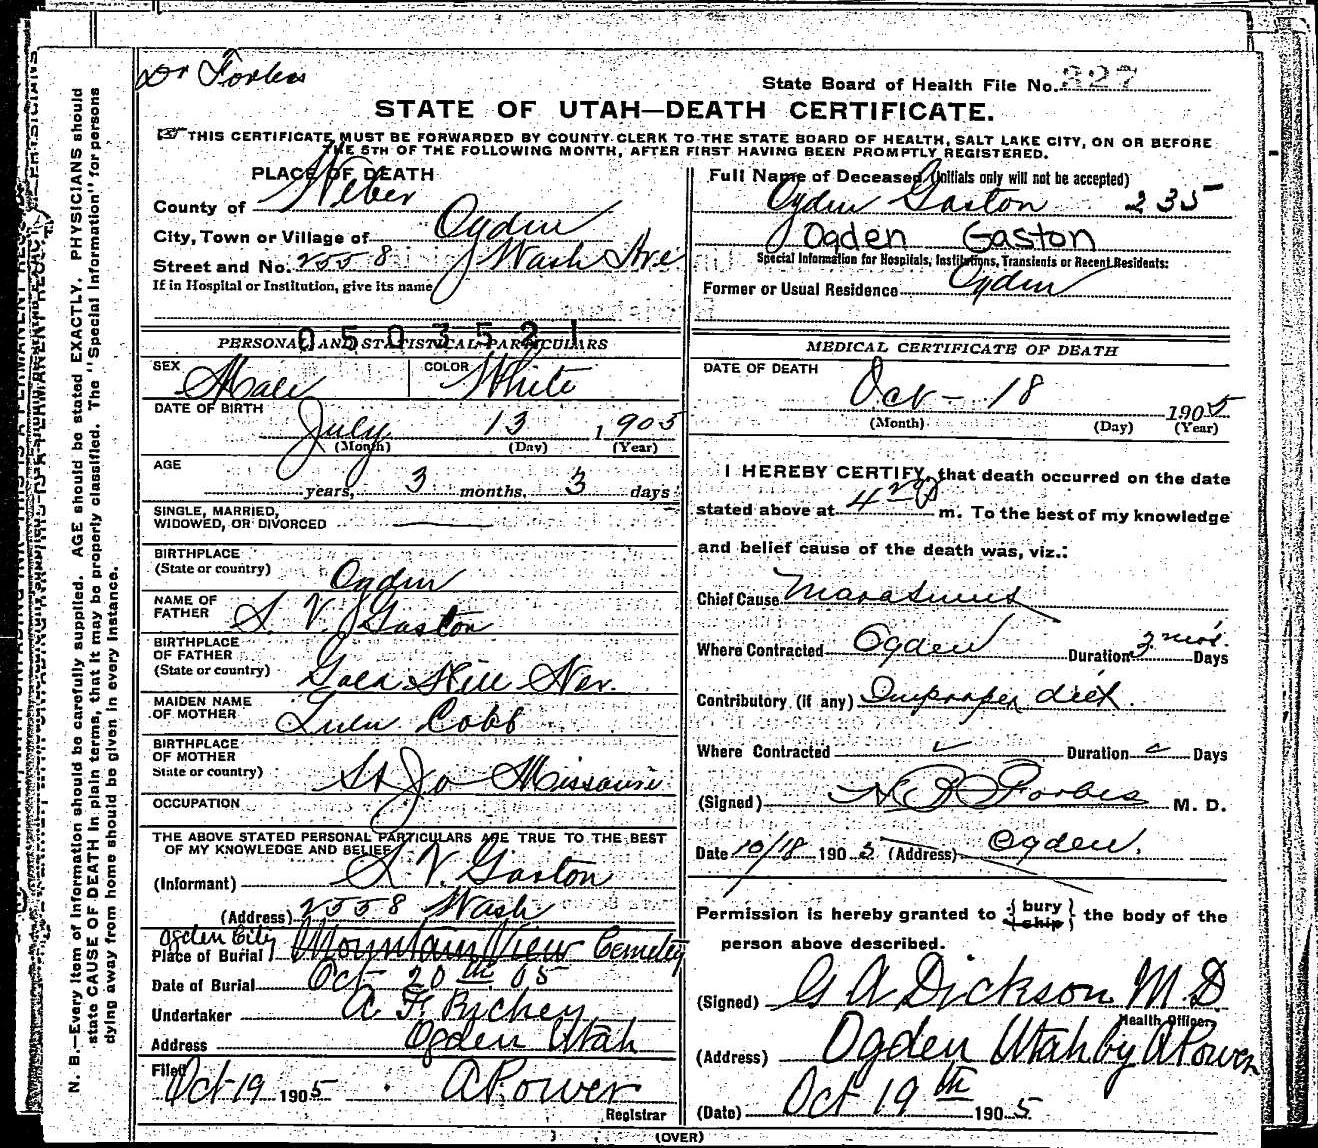 Dr Forbes
State Board of Health File No. 327
STATE OF UTAH—DEATH CERTIFICATE.
THIS CERTIFICATE MUST BE FORWARDED BY COUNTY CLERK TO THE STATE BOARD OF HEALTH, SALT LAKE CITY, ON OR BEFORE
THE 5TH OF THE FOLLOWING MONTH, AFTER FIRST HAVING BEEN PROMPTLY REGISTERED.
PLACE OF DEATH
County of Weber
City, Town or Village of Ogden
Street and No. 2558 Wash Ave
If in Hospital or Institution, give its name
050352
PERSONAL AND STATISTICAL PARTICULARS
SEX Male COLOR White
DATE OF BIRTH
July 13 1905
(Month) (Day) (Year)
AGE
years, 3 months, 3 days
SINGLE, MARRIED,
WIDOWED, OR DIVORCED —
BIRTHPLACE
(State or country) Ogden
NAME OF
FATHER S. V. Gaston
BIRTHPLACE
OF FATHER
(State or country) Gold Hill Nev.
MAIDEN NAME
OF MOTHER Lulu Cobb
BIRTHPLACE
OF MOTHER
State or country) St Jo Missouri
OCCUPATION
THE ABOVE STATED PERSONAL PARTICULARS ARE TRUE TO THE BEST
OF MY KNOWLEDGE AND BELIEF
(Informant) S. V. Gaston
(Address) 2558 Wash
Ogden City
Place of Burial Mountain View Cemetery
Date of Burial Oct 20th 05
Undertaker A. F. Richey
Address Ogden Utah
Filed Oct 19 1905 A Power
Registrar
Full Name of Deceased (Initials only will not be accepted)
Ogden Gaston 235
Ogden Gaston
Special Information for Hospitals, Institutions, Transients or Recent Residents:
Former or Usual Residence Ogden
MEDICAL CERTIFICATE OF DEATH
DATE OF DEATH
Oct - 18 1905
(Month) (Day) (Year)
I HEREBY CERTIFY, that death occurred on the date
stated above at 4 20 P m. To the best of my knowledge
and belief cause of the death was, viz.:
Chief Cause Marasmus
Where Contracted Ogden Duration 3 mos. Days
Contributory (if any) Improper diet.
Where Contracted Duration Days
(Signed) Forbes M. D.
Date 10/18 1905 (Address) Ogden.
Permission is hereby granted to { bury
ship } the body of the
person above described.
(Signed) G A Dickson M D
Health Officer
(Address) Ogden Utah by A Power
(Date) Oct 19th 1905
(OVER)
N. B.—Every item of information should be carefully supplied. AGE should be stated EXACTLY. PHYSICIANS should
state CAUSE OF DEATH in plain terms, that it may be properly classified. The "Special Information" for persons
dying away from home should be given in every instance.